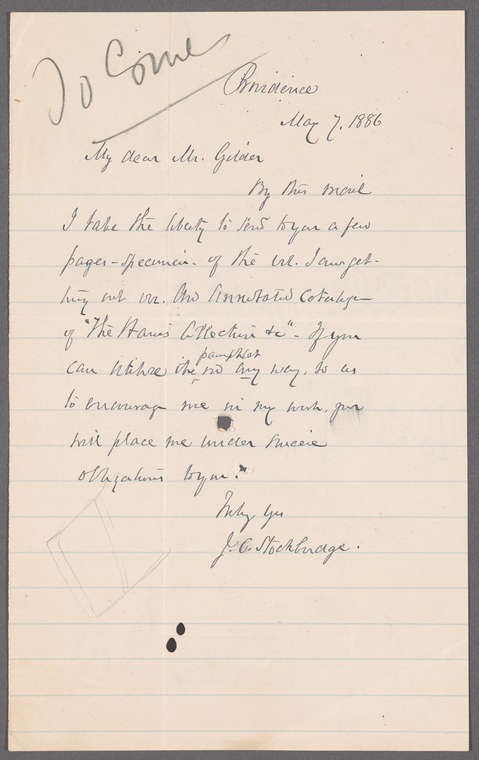 To Come
Providence
May 7, 1886
My dear Mr. Gilder
By this mail
I take the liberty to send to you a few
pages - specimen - of the vol. I am get-
ting out viz. The Annotated Catalogue
of "The Harris Collection &c" - If you
pamphlet
can utilize the in any way, so as
to encourage me in my work, you
will place me under sincere
obligations to you.
Truly yrs
J. C. Stockbridge.